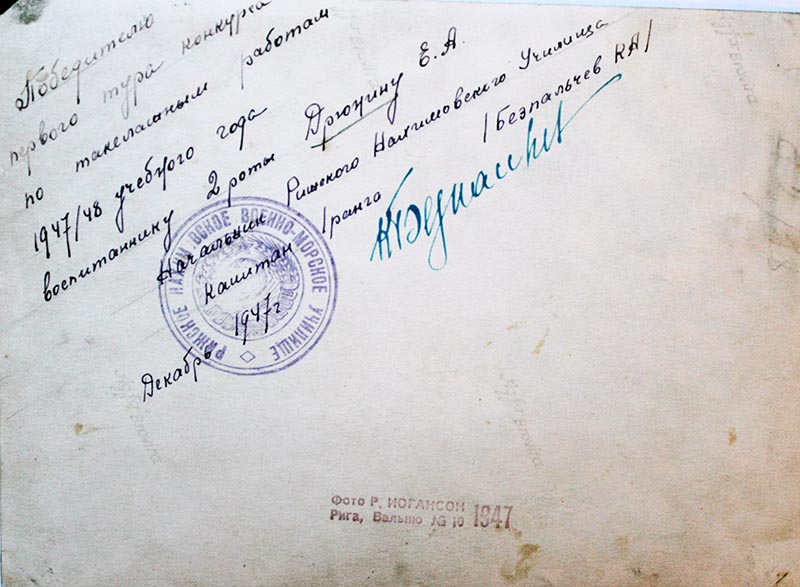 Победителю
первого тура конкурса
по такелажным работам
1947/48 учебного года
воспитаннику 2 роты Дрюнину Е.А.
Начальник Рижского Нахимовского Училища
капитан 1 ранга /Безпальчев КА/
Декабрь 1947г
РИЖСКОЕ НАХИМ ВСКОЕ ВОЕННО-МОРСКОЕ УЧИЛИЩЕ
Фото Р. ИОГАНСОН
Рига, Вальню № 10 1947